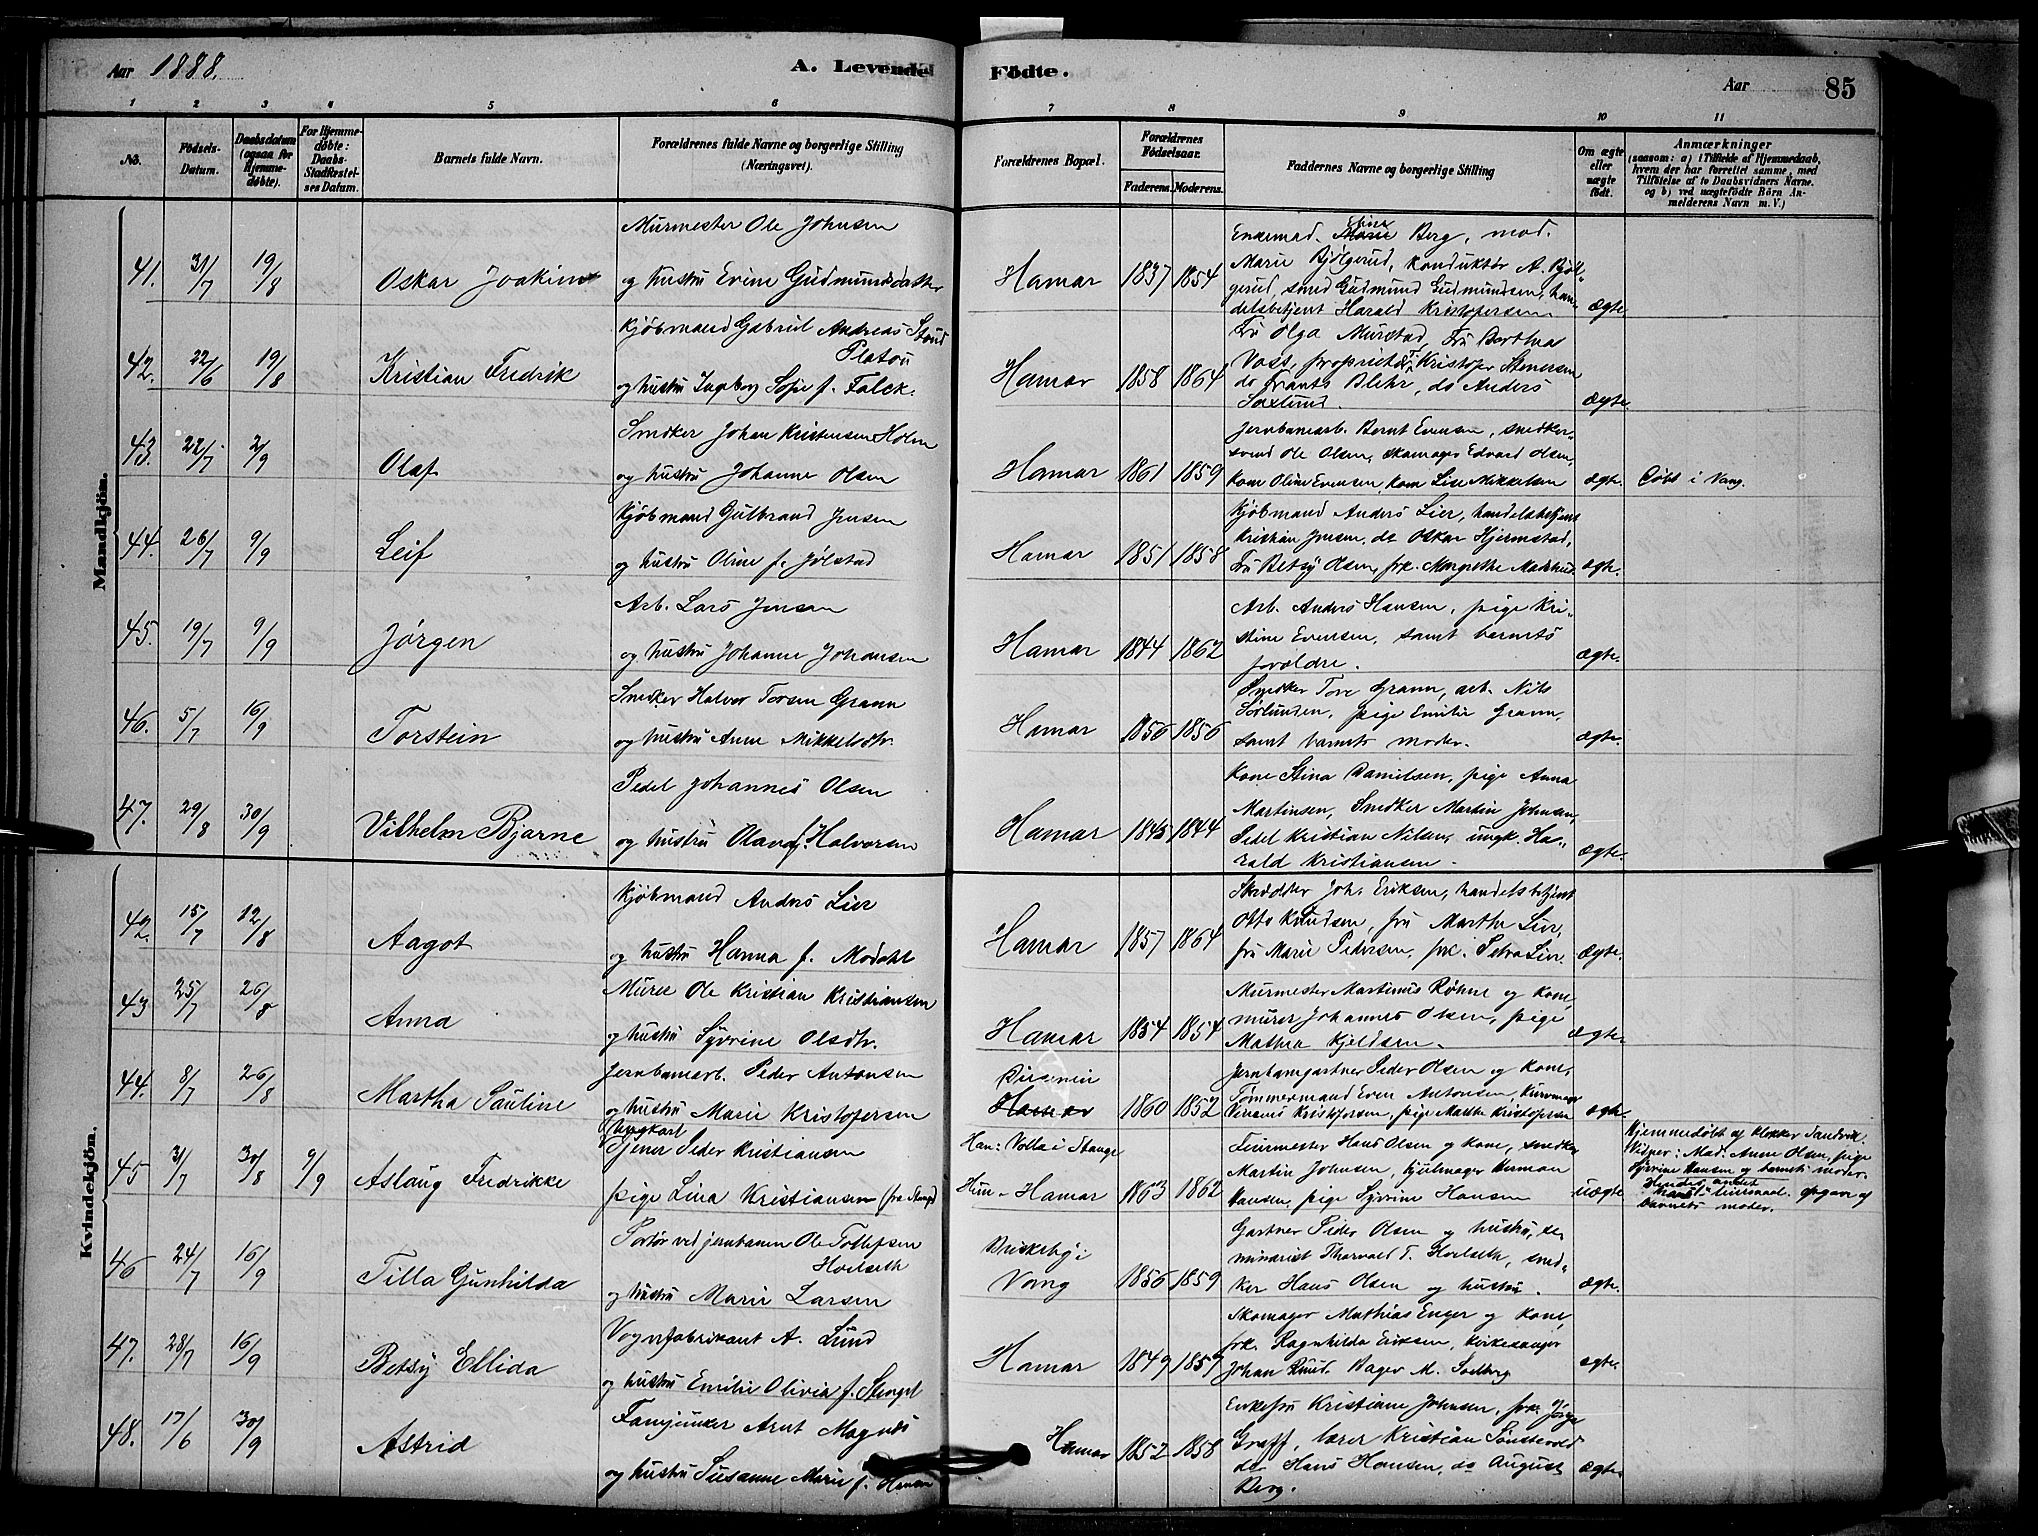 Aar 1888.
A. Levende
Födte.
Aar
85
1 2 3 4 5 6 7 8 9 10 11
No.
Födsels-
Datum.
Daabsdatum
(ogsaa for
Hjemme-
döbte).
For Hjemme-
döbte:
Daabs-
Stadfæstel-
ses Datum.
Barnets fulde Navn.
Forældrenes fulde Navne og borgerlige Stilling
(Næringsvei).
Forældrenes Bopæl.
Forældrenes
Födselsaar.
Faderens. Moderens.
Faddernes Navne og borgerlige Stilling
Om ægte
eller
uægte
født.
Anmærkninger
(saasom: a) i Tilfælde af Hjemmedaab,
hvem der har forrettet samme, med
Tilföielse af to Daabsvidners Navne.
og b) ved uægtefödte Börn An-
melderens Navn m. V.)
Mandkjön.
41. 31/7 19/8 Oskar Joakim
Murmester Ole Johnsen
og hustru Evine Gudmundsdatter
Hamar 1837 1854
Enkemad. Marie Eline Berg, mad.
Marie Bjølgerud, konduktør A. Bjøl-
gerud, smed Gudmund Gudmundsen, han-
delsbetjent Harald Kristofersen
ægte.
42. 22/6 19/8 Kristian Fredrik
Kjøbmand Gabriel Andreas Stoud
Platou
og hustru Ingeborg Sofie f. Falck.
Hamar 1858 1864
Fru Olga Murstad, Fru Berthea
Voss, proprietær Kristofer Stenersen
do Frants Blehr, do Anders
Saxlund.
ægte.
43. 22/7 2/9 Olaf
Snedker Johan Kristensen Holm
og hustru Johanne Olsen
Hamar 1861 1859
Jernbanearb. Bernt Evensen, snedker-
svend Ole Olsen, skomager Edvard Olsen,
kone Oline Evensen, kone Lise Mikkelsen
ægte. Døbt i Vang.
44. 26/7 9/9 Leif
Kjøbmand Gulbrand Jensen
og hustru Oline f. Jølstad
Hamar 1851 1858
Kjøbmand Anders Lier, handelsbetjent
Kristian Jensen, do Oskar Hjermstad,
Fru Betsy Olsen, frk. Margrethe
ægte.
45. 19/7 9/9 Jørgen
Arb. Lars Jensen
og hustru Johanne Johansen
Hamar 1844 1862
Arb. Anders Hansen, pige Kri-
stine Evensen, samt barnets
forældre.
ægte.
46. 5/7 16/9 Torstein
Snedker Halvor Torsen Grann
og hustru Anne Mikkelsdtr.
Hamar 1856 1856
Snedker Tore Grann, arb. Nils
Sørlunden, pige Emilie Grann,
samt barnets moder.
ægte.
47. 29/8 30/9 Vilhelm Bjarne
Pedel Johannes Olsen
og hustru Olava f. Halvorsen
Hamar 1845 1844
Kone Stina Danielsen, pige Anna
Martinsen, Snedker Martin Johnsen,
Pedel Kristian Nilsen, ungk. Ha-
rald Kristiansen.
ægte.
Kvindekjön.
42. 15/7 12/8 Aagot
Kjøbmand Anders Lier
og hustru Hanna f. Modahl
Hamar 1857 1864
Skrædder Joh. Eriksen, handelsbetjent
Otto Knudsen, fru Marthe Lier,
fru Marie Pedersen, frk. Petra Lier.
ægte.
43 25/7 26/8 Anna
Murer Ole Kristian Kristiansen
og hustru Syverine Olsdtr.
Hamar 1854 1854
Murmester Martinus Røhne og kone,
murer Johannes Olsen, pige
Mathea Kjeldsen.
ægte.
44. 8/7 26/8 Martha Pauline
Jernbanearb. Peder Antonsen
og hustru Marie Kristofersen
Hamar 1860 1852
Jernbanegartner Peder Olsen og kone,
Tømmermand Even Antonsen, kurvmager
Kristofersen, pige Marthe Kristofersen
ægte.
45 31/7 30/8 9/9 Aslaug Fredrikke
Ungkarl
Tjener Peder Kristiansen
pige Lina Kristiansen (fra Stange)
Han: Volla i Stange
Hun - Hamar 1863 1862
Feiermester Hans Olsen og kone, snedker
Martin Johnsen, hjulmager Herman
Hansen, pige Syverine Hansen
uægte
Hjemmedøbt af klokker Sandvik.
Vidner: Mad. Anne Olsen, pige
Syverine Hansen og barnets moder.
Hendes andet
leiermaal. Opgave af
barnets moder.
46 24/7 16/9 Tilla Gunhilda
Portør ved jernbanen Ole Tollefsen
Hoelseth
og hustru Marie Larsen
Briskeby i
Vang 1856 1859
Gartner Peder Olsen og hustru, se-
minarist Thorvald T. Hoelseth, sned-
ker Hans Olsen og hustru.
ægte.
47. 28/7 16/9 Betsy Ellida
Vognfabrikant A. Lund
og hustru Emilie Olivia f. Stengel
Hamar 1849 1857
Skomager Mathias Enger og kone,
frk. Ragnhilda Eriksen, kirkesanger
Johan Ruud. Bager M. Solberg
ægte.
48. 17/6 30/9 Astrid
Fanejunker Arnt Magnus
og hustru Susanne Marie f. Hansen
Hamar 1852 1858
Enkefru Kristiane Johnsen, frk.
Graff, lærer Kristian
do Hans Hansen, do August
Berg.
ægte